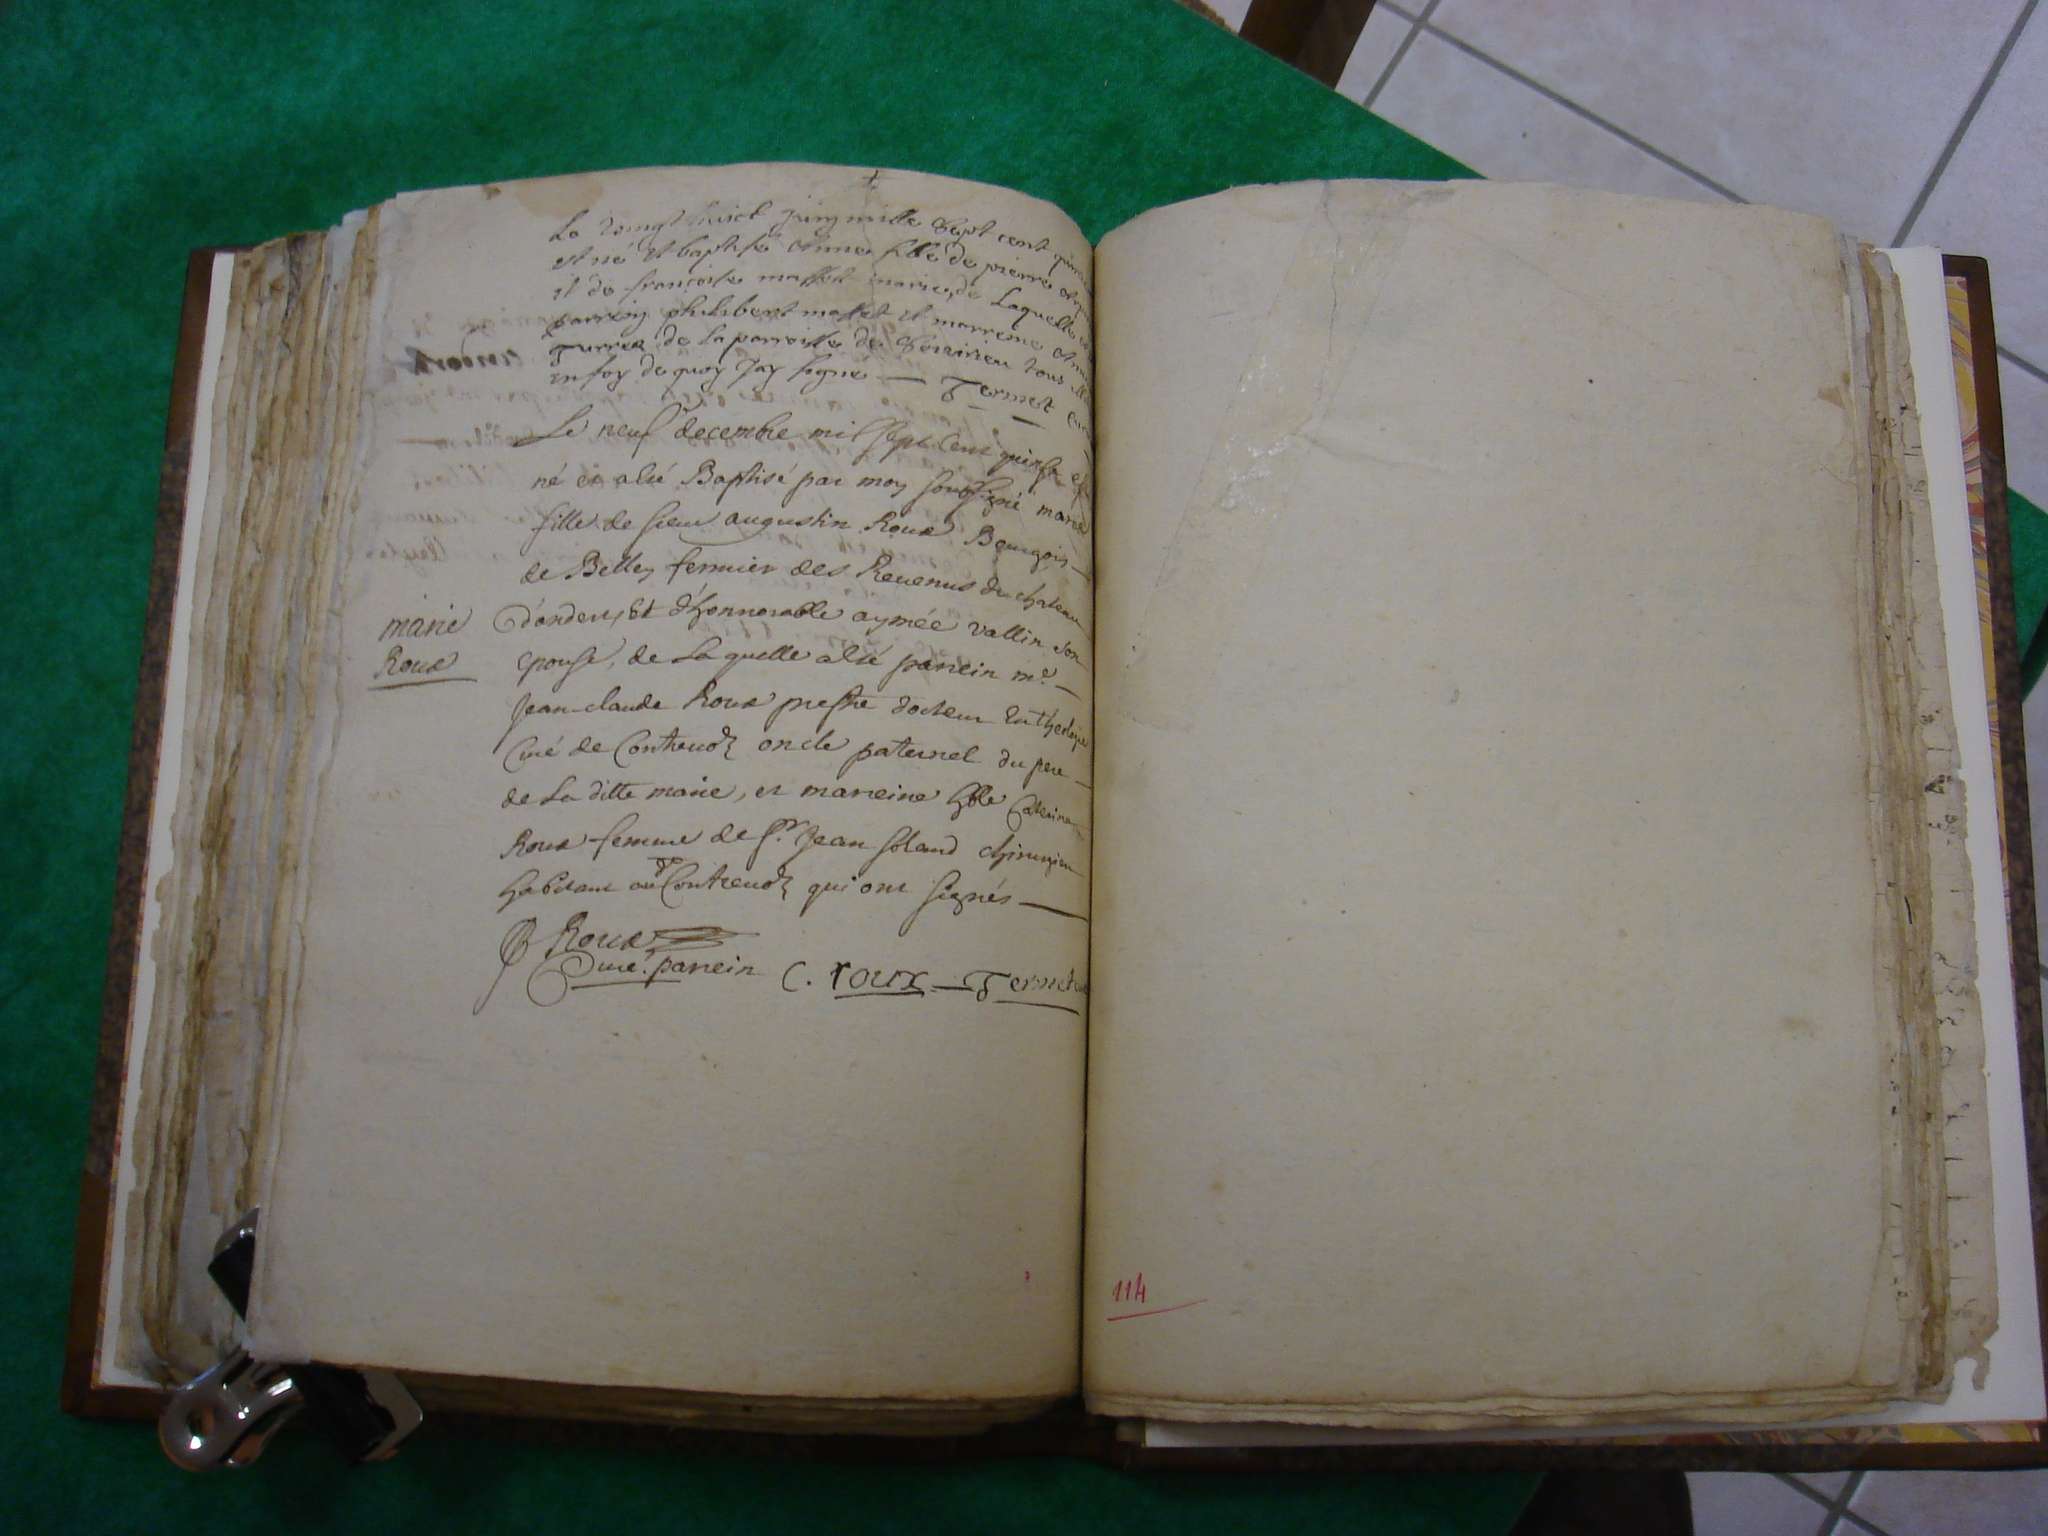 Le vingt huict juin mille sept cent quinze
est né et baptisé Anne fille de pierre
et de françoise mollet maries, de Laquelle
parrein philibert mollet et marreine Anne
de la parroisse de tous
en foy de quoy Jay signé — Termet curé
Le neuf decembre mil sept Cent quinse est
né et a esté Baptisé par moy soubsigné marie
fille de sieur augustin Roux Bourgois
de Belley fermier des Revenus du chateau
marie
Roux
d'andert, Et d'honnorable aymée vallin son
epouse, de La quelle a esté parrein mre
Jean-claude Roux prestre docteur En theologie
Curé de Contrevoz oncle paternel du pere
de La ditte marie, et marreine hble Caterine
Roux femme de Sr. Jean Goland chirurgien
habitant aud Contrevoz qui ont signés
Roux
Curé. parrein C. roux Termet curé
114